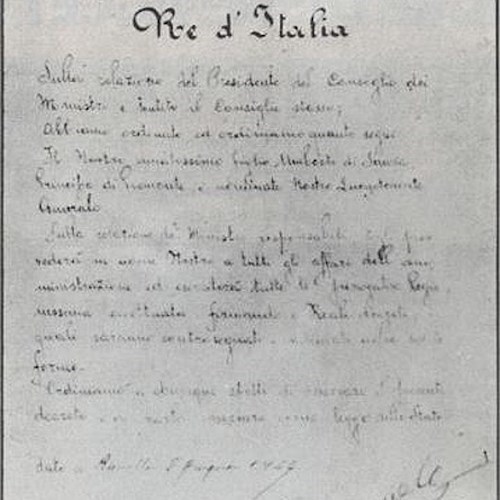 Re d'Italia
Sulla relazione del Presidente del Consiglio dei
Ministri e sentito il Consiglio stesso;
Abbiamo ordinato ed ordiniamo quanto segue
Il Nostro amatissimo figlio Umberto di Savoia
Principe di Piemonte, è nominato Nostro Luogotenente
Generale
Sulla relazione dei Ministri responsabili, Egli prov
vederà in nome Nostro a tutti gli affari dell'am
ministrazione ed eserciterà tutte le prerogative Regie,
nessuna eccettuata, firmando i Reali decreti, i
quali saranno contrassegnati e nelle solite
forme.
Ordiniamo a chiunque spetti di osservare il presente
decreto e di farlo osservare come legge dello Stato
dato a Ravello 5 Giugno